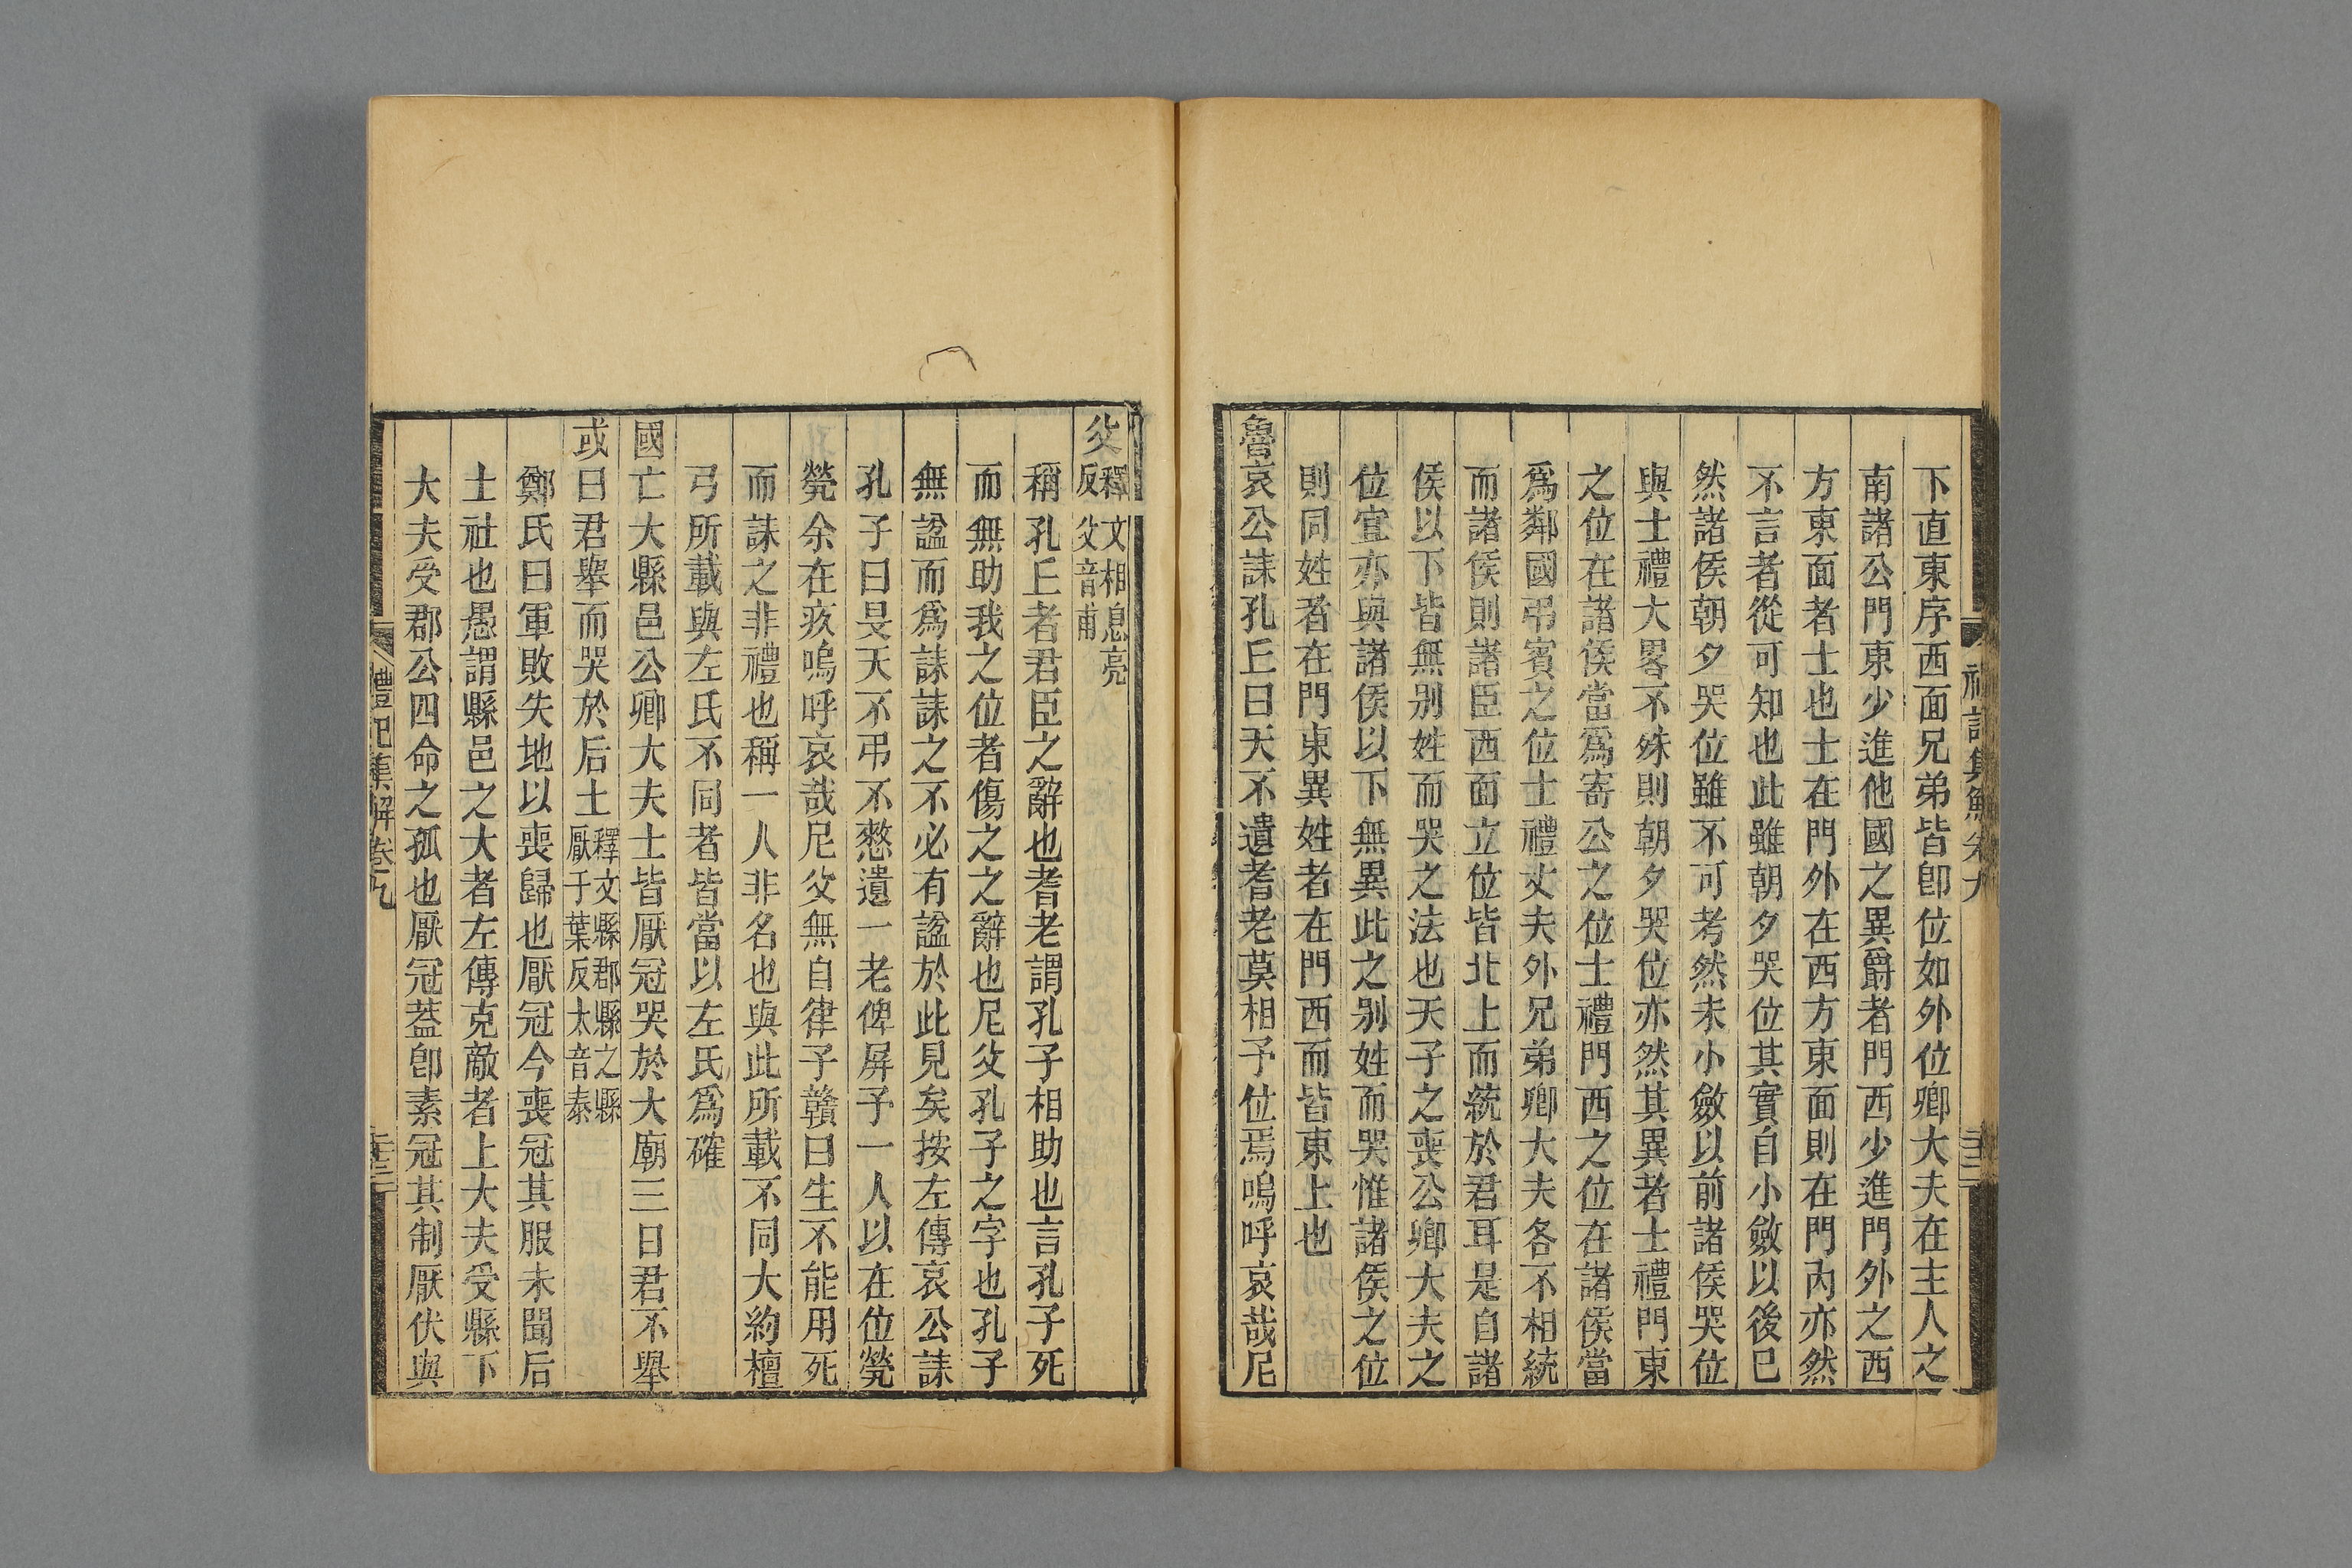 下直東序西面兄弟皆卽位如外位卿大夫在主人之
南諸公門東少進他國之異爵者門西少進門外之西
方東面者士也士在門外在西方東面則在門內亦然
不言者從可知也此雖朝夕哭位其實自小斂以後已
然諸侯朝夕哭位雖不可考然未小斂以前諸侯哭位
與士禮大畧不殊則朝夕哭位亦然其異者士禮門東
之位在諸侯當爲寄公之位士禮門西之位在諸侯當
爲鄰國弔賓之位士禮丈夫外兄弟卿大夫各不相統
而諸侯則諸臣西面立位皆北上而統於君耳是自諸
侯以下皆無别姓而哭之法也天子之喪公卿大夫之
位宜亦與諸侯以下無異此之别姓而哭惟諸侯之位
則同姓者在門東異姓者在門西而皆東上也
魯哀公誄孔丘曰天不遺耆老莫相予位焉嗚呼哀哉尼
父釋文相息亮反父音甫
稱孔丘者君臣之辭也耆老謂孔子相助也言孔子死
而無助我之位者傷之之辭也尼父孔子之字也孔子
無諡而爲誄誄之不必有諡於此見矣按左傳哀公誄
孔子曰旻天不弔不憖遺一老俾屏予一人以在位煢
煢余在疚嗚呼哀哉尼父無自律子贛曰生不能用死
而誄之非禮也稱一人非名也與此所載不同大約檀
弓所載與左氏不同者皆當以左氏爲確
國亡大縣邑公卿大夫士皆厭冠哭於大廟三日君不舉
或曰君舉而哭於后土釋文縣郡縣之縣厭于葉反太音泰
鄭氏曰軍敗失地以喪歸也厭冠今喪冠其服未聞后
土社也愚謂縣邑之大者左傳克敵者上大夫受縣下
大夫受郡公四命之孤也厭冠葢卽素冠其制厭伏與
禮記集解卷九